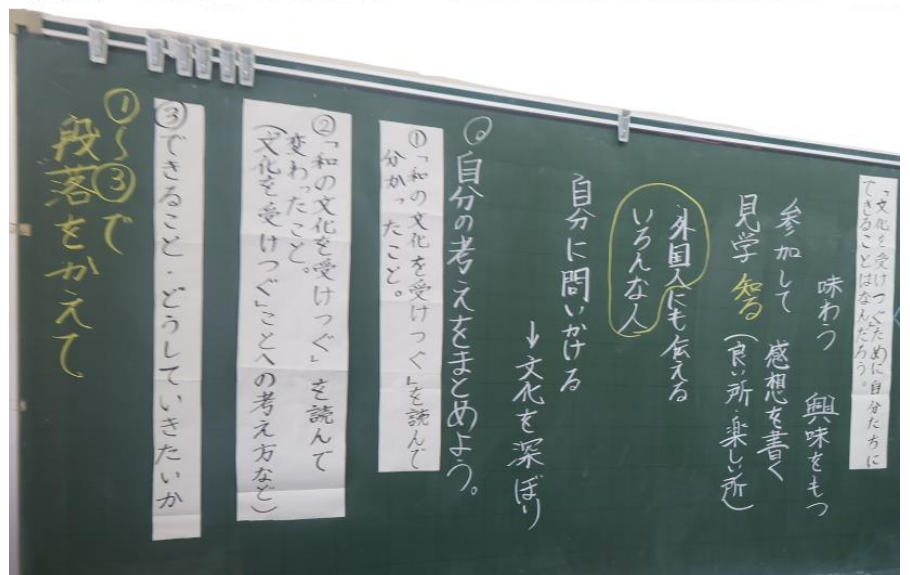 「文化を受けつぐ」ために自分たちに
できることはなんだろう。
味わう　興味をもつ
参加して　感想を書く
見学　知る（良い所・楽しい所）
外国人にも伝える
いろんな人
自分に問いかける
↓文化を深ぼり
◎自分の考えをまとめよう。
①「和の文化を受けつぐ」を読んで
分かったこと。
②「和の文化を受けつぐ」を読んで
変わったこと。
（文化を受けつぐ」ことへの考え方など）
③できること・どうしていきたいか
①〜③で
段落をかえて